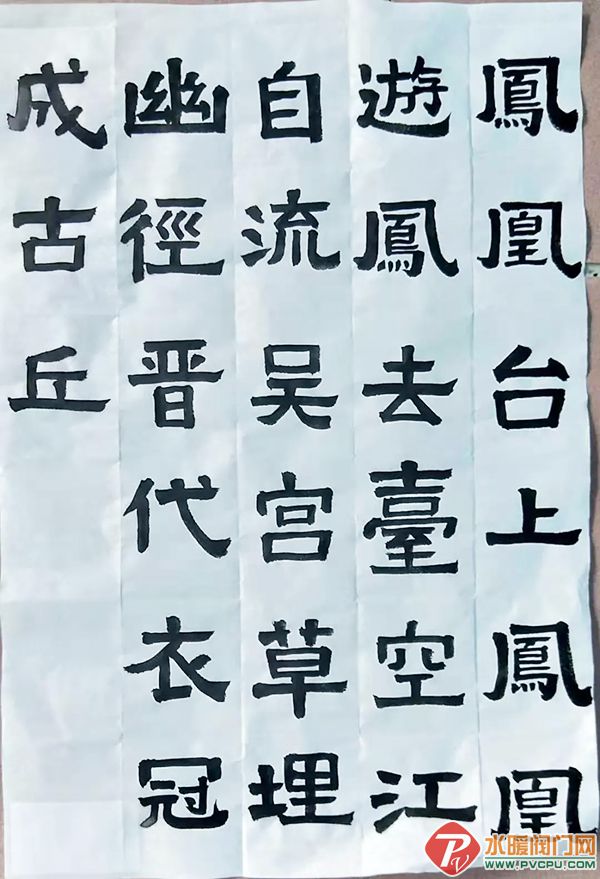 鳳凰台上鳳凰
遊鳳去臺空江
自流吴宫草埋
幽徑晋代衣冠
成古丘
PV
水暖阀门网
WWW.PVCPU.COM